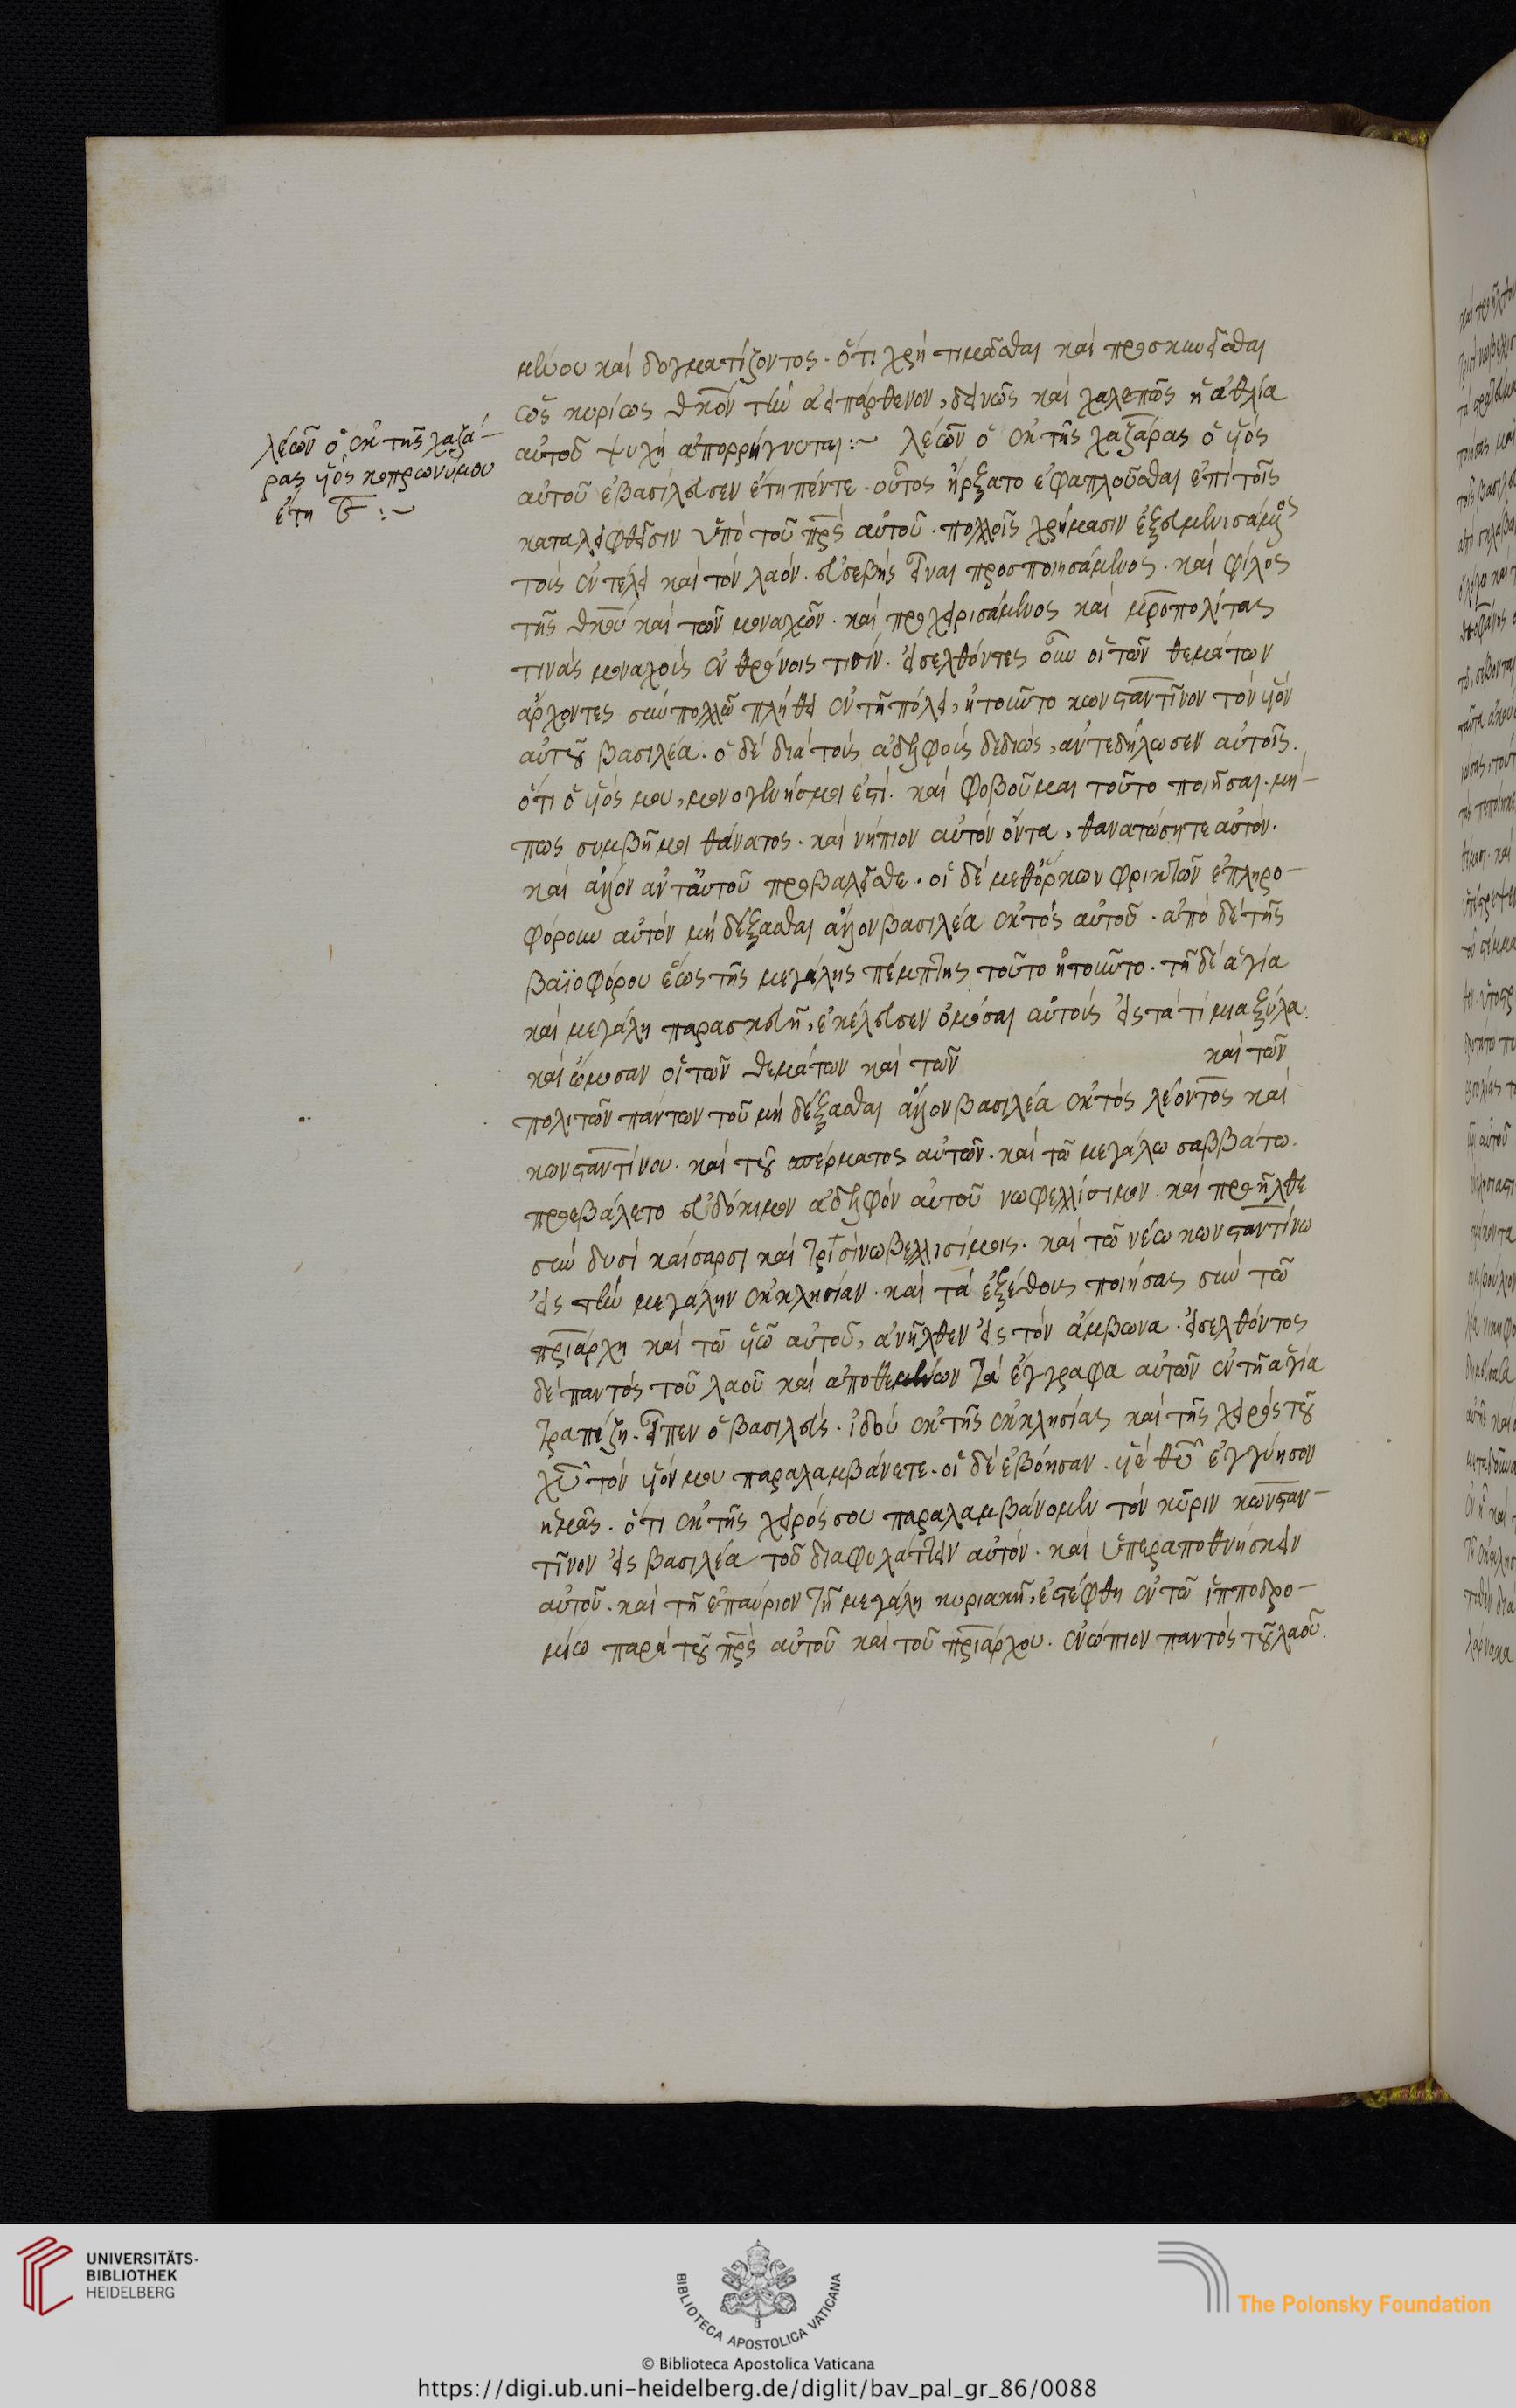 λέων ὁ ἐκ τῆς χαζά-
ρας υἱὸς κοπρωνύμου
ἔτη ε :~
μένου καὶ δογματίζοντος. ὅτι χρὴ τιμᾶσθαι καὶ προσκυνεῖσθαι
ὡς κυρίως θκον τὴν ἀειπάρθενον, δεινῶς καὶ χαλεπῶς ἡ ἀθλία
αὐτοῦ ψυχὴ ἀπορρήγνυται :~ λέων ὁ ἐκ τῆς χαζάρας ὁ υἱὸς
αὐτοῦ ἐβασίλευσεν ἔτη πέντε. οὗτος ἤρξατο ἐφαπλοῦσθαι ἐπὶ τοῖς
καταλειφθεῖσιν ὑπὸ τοῦ πρς αὐτοῦ. πολλοῖς χρήμασιν ἐξευμενισάμενος
τοὺς ἐν τέλει καὶ τὸν λαόν. εὐσεβὴς εἶναι προσποιησάμενος. καὶ φίλος
τῆς θκου καὶ τῶν μοναχῶν. καὶ προχειρισάμενος καὶ μροπολίτας
τινὰς μοναχοὺς ἐν θρόνοις τισίν. εἰσελθόντες οὖν οἱ τῶν θεμάτων
ἄρχοντες σὺν πολλῶ πλήθει ἐν τῆ πόλει, ἠτοῦντο κωνσταντῖνον τὸν υἱὸν
αὐτοῦ βασιλέα. ὁ δὲ διὰ τοὺς ἀδελφοὺς δεδιώς, ἀντεδήλωσεν αὐτοῖς.
ὅτι ὁ υἱός μου, μονογενής μοι ἐστί. καὶ φοβοῦμαι τοῦτο ποιῆσαι. μή-
πως συμβῆ μοι θάνατος. καὶ νήπιον αὐτὸν ὄντα, θανατώσητε αὐτόν.
καὶ ἄλλον ἀντ' αὐτοῦ προβαλεῖσθε. οἱ δὲ μεθ' ὅρκων φρικτῶν ἐπληρο-
φόρουν αὐτὸν μὴ δέξασθαι ἄλλον βασιλέα ἐκτὸς αὐτοῦ. ἀπὸ δὲ τῆς
βαϊοφόρου ἕως τῆς μεγάλης πέμπτης τοῦτο ἠτοῦντο. τῆ δὲ ἁγία
καὶ μεγάλη παρασκευῆ, ἐκέλευσεν ὀμόσαι αὐτοὺς εἰς τὰ τίμια ξύλα.
καὶ ὤμοσαν οἱ τῶν θεμάτων καὶ τῶν καὶ τῶν
πολιτῶν πάντων τοῦ μὴ δέξασθαι ἄλλον βασιλέα ἐκτὸς λέοντος καὶ
κωνσταντίνου. καὶ τοῦ σπέρματος αὐτῶν. καὶ τῶ μεγάλω σαββάτω.
προεβάλετο εὐδόκιμον ἀδελφὸν αὐτοῦ νωφελλίσιμον. καὶ προῆλθε
σὺν δυσὶ καίσαρσι καὶ τρισὶ νωβελλισίμοις. καὶ τῶ νέω κωνσταντίνω
εἰς τὴν μεγάλην ἐκκλησίαν. καὶ τὰ ἐξ ἔθους ποιήσας σὺν τῶ
πριάρχη καὶ τῶ υἱῶ αὐτοῦ, ἀνῆλθεν εἰς τὸν ἄμβωνα. εἰσελθόντος
δὲ παντὸς τοῦ λαοῦ καὶ ἀποθεμένων τὰ ἔγγραφα αὐτῶν ἐν τῆ ἁγία
τραπέζη. εἶπεν ὁ βασιλεύς. ἰδοὺ ἐκ τῆς ἐκκλησίας καὶ τῆς χειρὸς τοῦ
χυ τὸν υἱόν μου παραλαμβάνετε. οἱ δὲ ἐβόησαν. υἱὲ θυ ἐγγύησον
ἡμᾶς. ὅτι ἐκ τῆς χειρός σου παραλαμβάνομεν τὸν κῦριν κωνσταν-
τῖνον εἰς βασιλέα τοῦ διαφυλάττειν αὐτόν. καὶ ὑπεραποθνήσκειν
αὐτοῦ. καὶ τῆ ἐπαύριον τῆ μεγάλη κυριακῆ, ἐστέφθη ἐν τῶ ἱπποδρο-
μίω παρὰ τοῦ πρς αὐτοῦ καὶ τοῦ πριάρχου. ἐνώπιον παντὸς τοῦ λαοῦ.
UNIVERSITÄTS-
BIBLIOTHEK
HEIDELBERG
BIBLIOTECA APOSTOLICA VATICANA
The Polonsky Foundation
© Biblioteca Apostolica Vaticana
https://digi.ub.uni-heidelberg.de/diglit/bav_pal_gr_86/0088